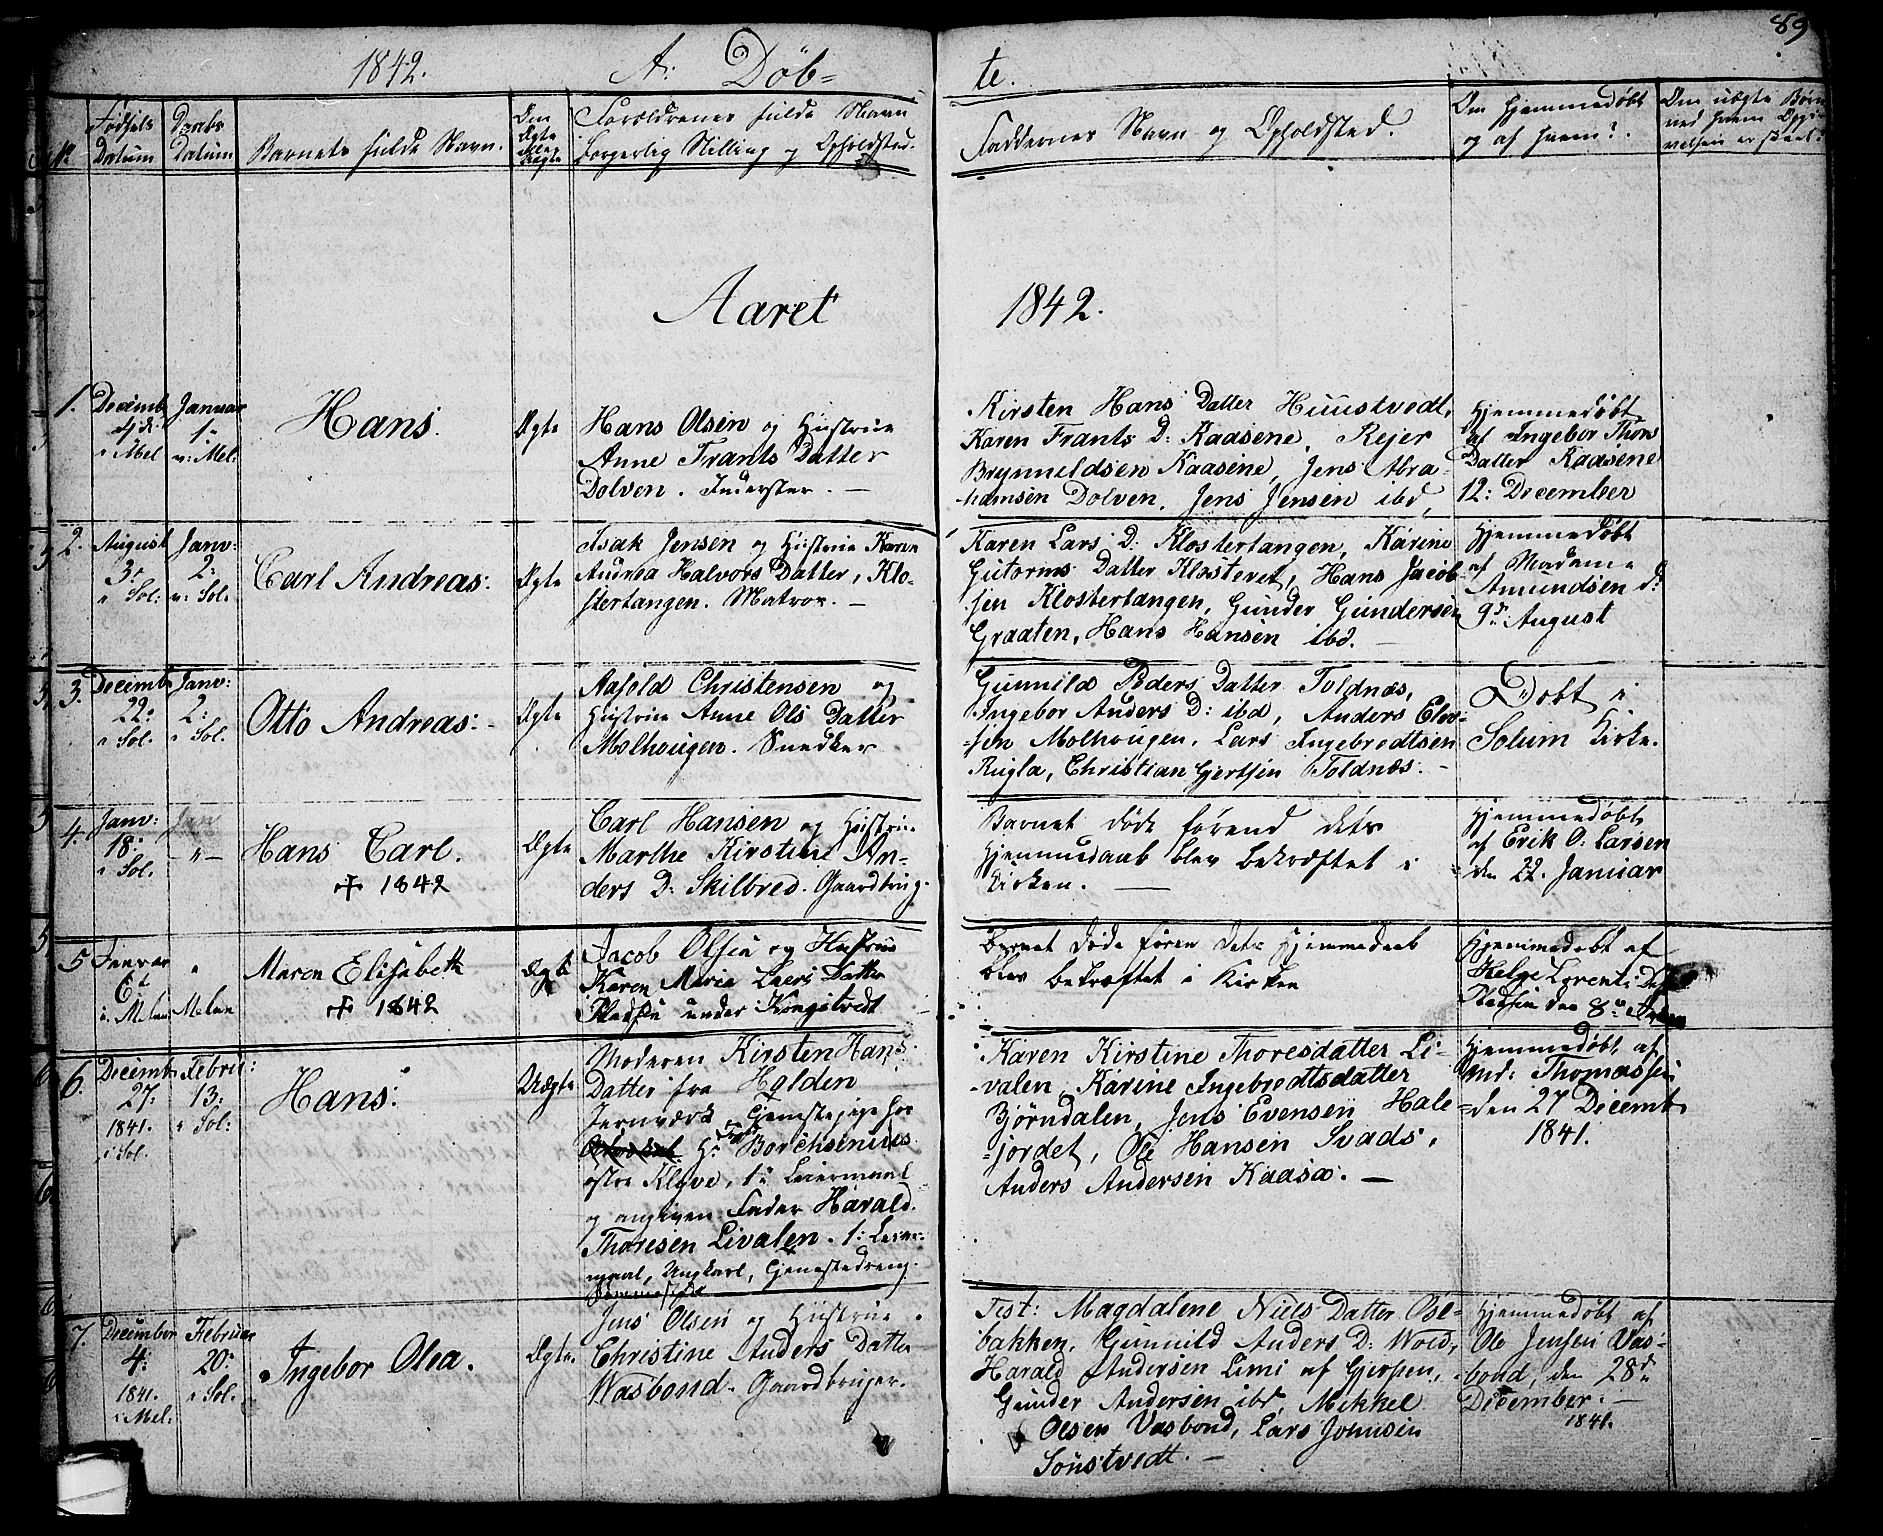 89
1842. A: Döb= te.
No
Fødsels Datum
Daabs Datum
Barnets fulde Navn.
Om Ægte eller Uægte
Forældrenes fulde Navn
borgerlig Stilling og Opholdsted.
Faddernes Navn og Opholdsted.
Om hjemmedøbt
og af hvem?
Om uægte Børn
Aaret 1842.
1.
Decemb
i Mel
Januar
1
v: Mel:
Hans.
Ægte
Hans Olsen og Hustrue
Anne Frants Datter
Dolven. Inderster. —
Kirsten Hans Datter Huustvedt,
Karen Frants D: Kaasene, Rejer
Brynnildsen Kaasene, Jens Abra-
hamsen Dolven, Jens Jensen ibd,
Hjemmedøbt
af Ingebor Thors
Datter Kaasene
12: December
2.
August
3
i Sol:
Janv:
2:
v: Sol:
Carl Andreas:
Ægte
Isak Jensen og Hustrue Karen
Andrea Halvors Datter, Klo-
stertangen. Matros. —
Karen Lars D: Klostertangen, Karine
Gutorms Datter Klosteret, Hans Jacob-
sen Klostertangen, Gunder Gundersen
Graaten, Hans Hansen ibd. —
Hjemmedøbt
af Madame
Amundsen d:
9de August
3.
Decemb
22:
i Sol.
Janv:
2:
i Sol.
Otto Andreas:
Ægte
Aasold Christensen og
Hustrue Anne Ols Datter
Molhougen. Snedker
Gunnild Peders Datter Toldnæs,
Ingebor Anders D: ibd, Anders Elov-
sen Molhougen, Lars Ingebredtsen
Rugla, Christian Gjertsen Toldnæs. —
Døbt i
Solum Kirke.
4.
Janv:
18:
i Sol.
Jan
— " —
Hans Carl.
✝ 1842
Ægte
Carl Hansen og Hustrue
Marthe Kirstine An-
ders D: Skilbred. Gaardbrug.
Barnet døde førend dets
Hjemmedaab blev bekræftet i
Kirken. —
Hjemmedøbt
af Erik O: Larsen
den 22. Januar
5
Januar
6t
i Melum
"
Melum
Maren Elisabeth
✝ 1842
Ægte
Jacob Olsen og Hustrue
Karen Maria Laers Datter
Pladsen under Kongstvedt
Barnet døde føren dets Hjemmedaab
blev bekræftet i Kirken
Hjemmedøbt af
Helge Lorents D
Pladsen den 8de
6.
Decemb
27:
1841.
i Sol.
Februar:
13:
i Sol:
Hans:
Uægte
Moderen Kirsten Hans
Datter fra Holden
Jernværk Tjenestepige hos
Hr Borchsenius
østre Klove, 1te Leiermaal
og angiven Fader Harald
Thoresen Livalen. 1: Leier-
maal, Ungkarl, Tjenestedreng.
Sammesteds
Karen Kirstine Thoresdatter Li-
valen, Karine Ingebredtsdatter
Bjørndalen, Jens Evensen Hale-
jordet, Ole Hansen Svads,
Anders Andersen Kaasa. —
Hjemmedøbt af
And: Thomassen
den 27 Decemb
1841.
7.
December
4:
1841.
i Mel:
Februar
20:
i Sol.
Ingebor Olea.
Ægte.
Jens Olsen og Hustrue
Christine Anders Datter
Wasbond. Gaardbruger.
Test: Magdalene Niels Datter Ose-
bakken, Gunnild Anders D: Wold,
Harald Andersen Limi af Gjerpen,
Gunder Andersen ibd, Mikkel
Olsen Vasbond, Lars Johnsen
Sønstvedt. —
Hjemmedøbt af
Ole Jensen Vas-
bond, den 28de
December. —
1841.